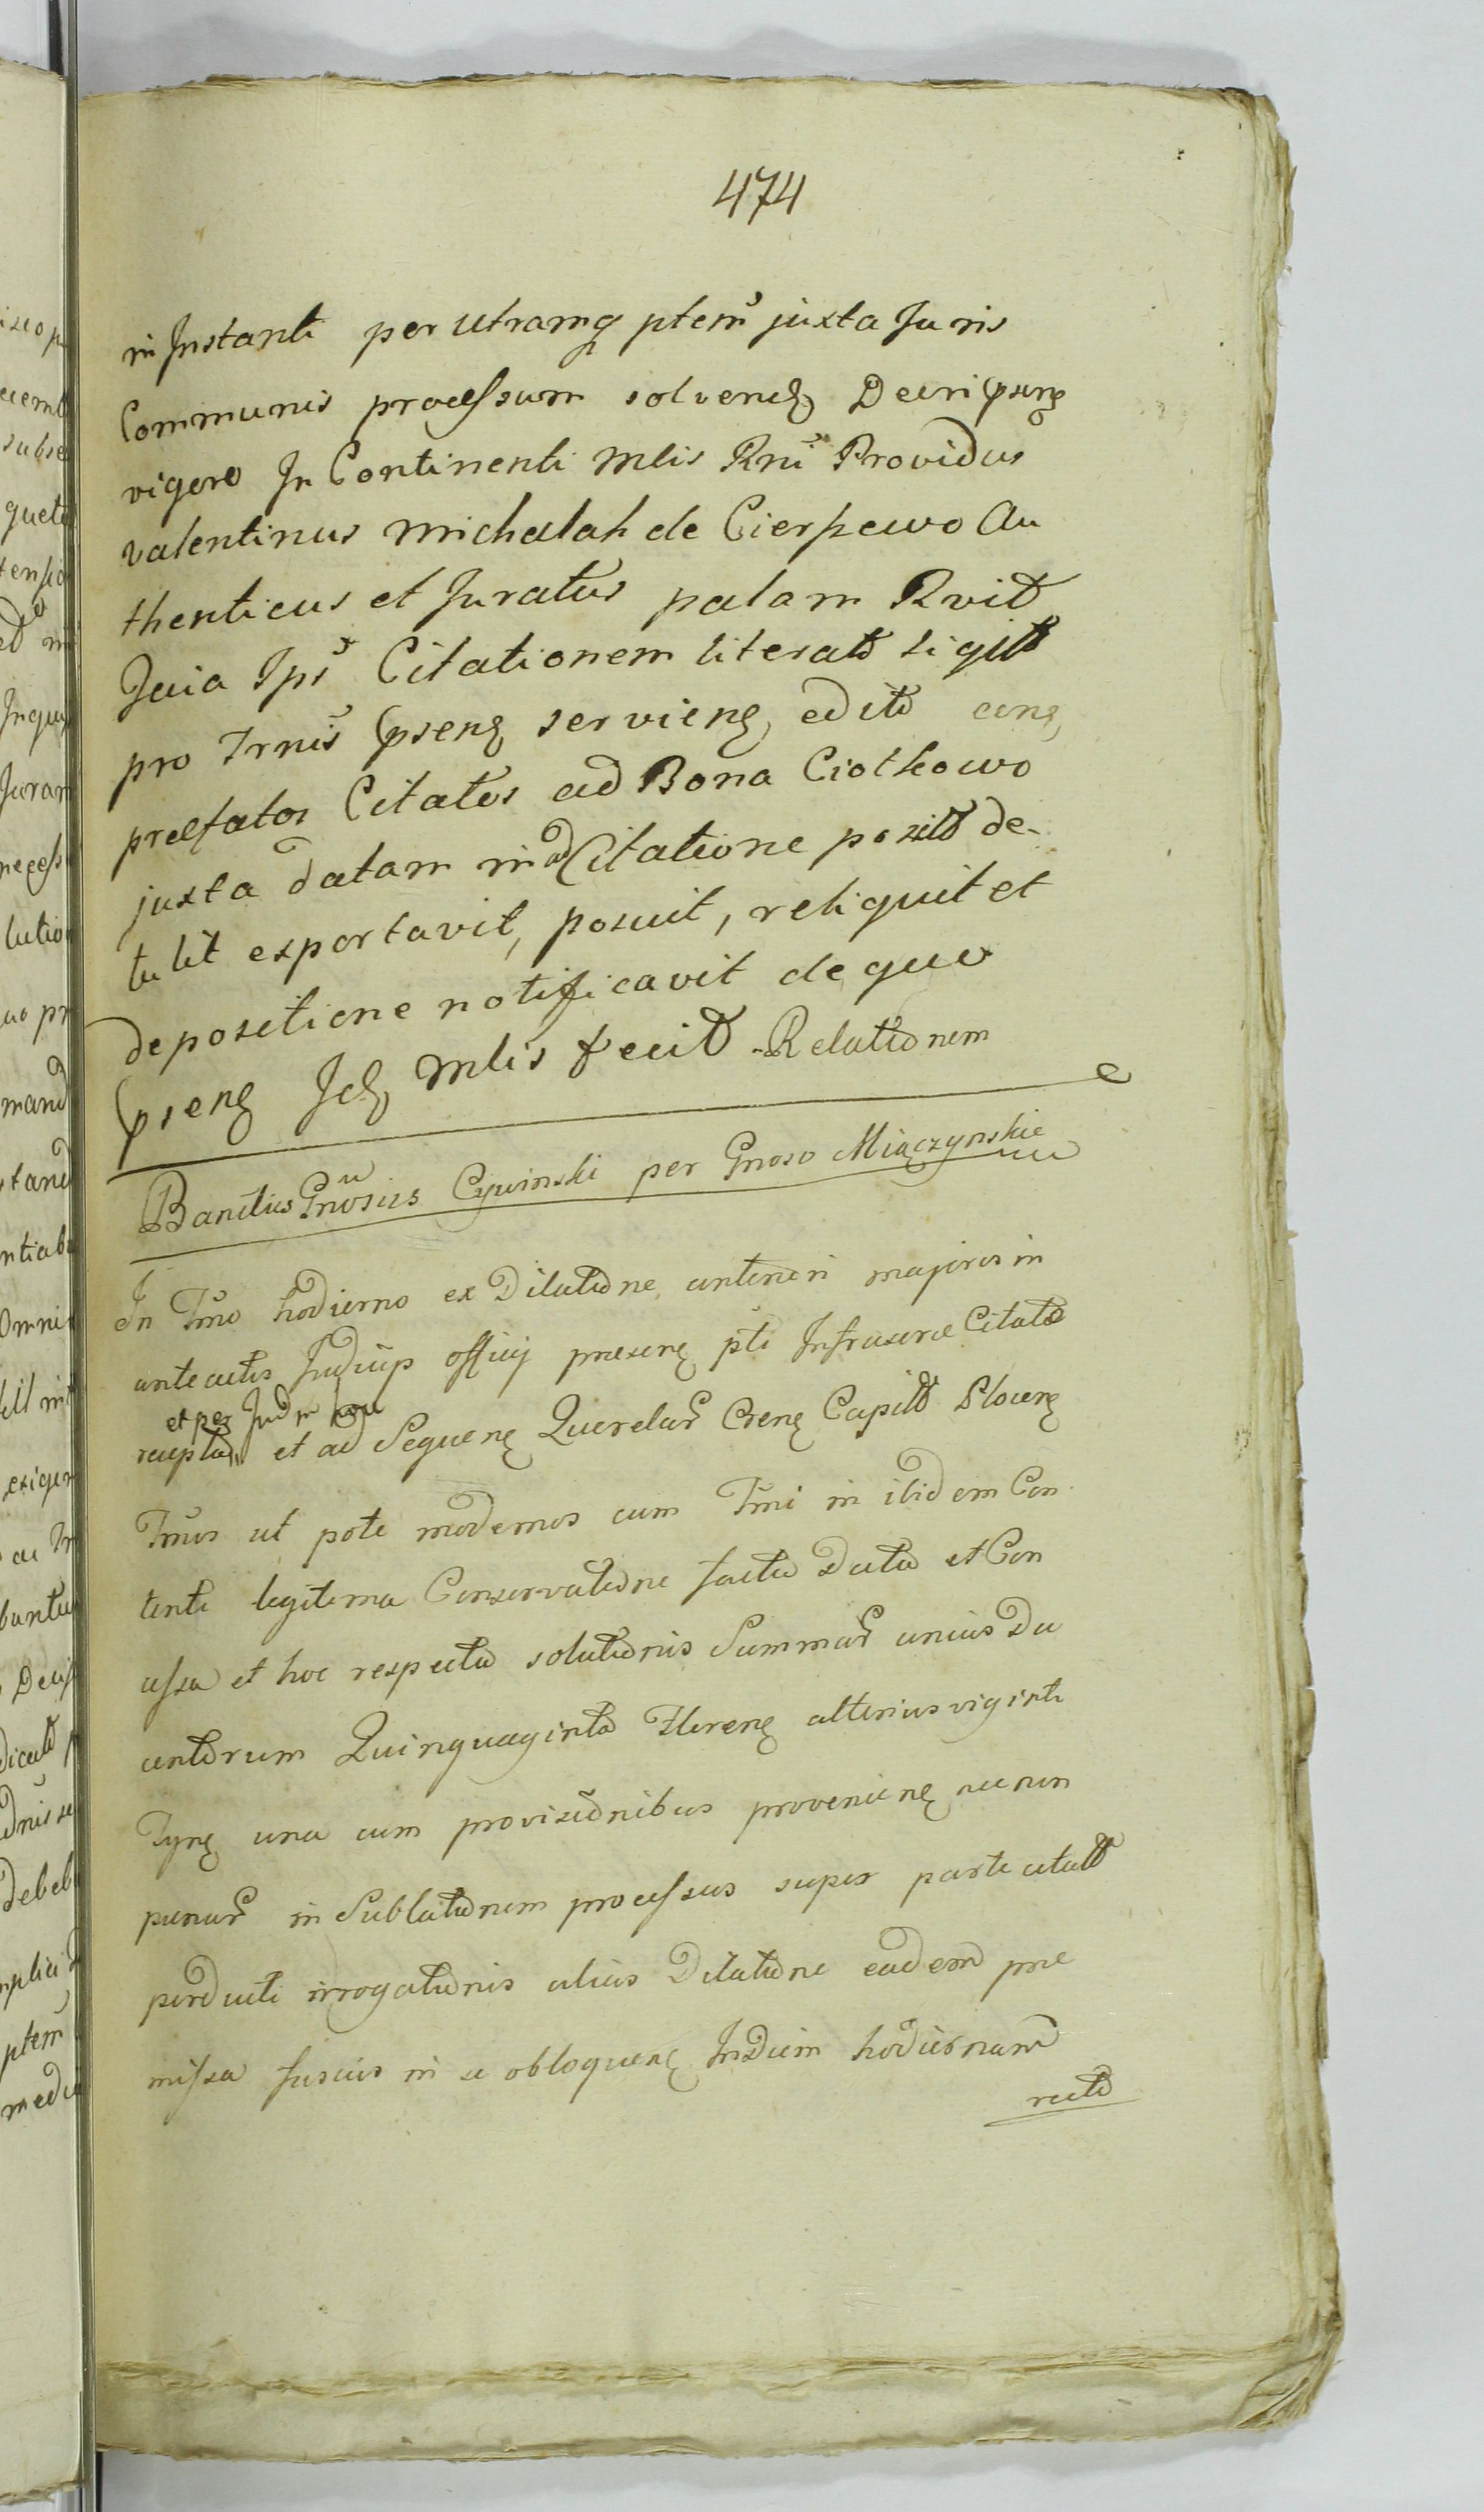 474
in Instanti per Utramq ptem juxta Juris
Communis processum solvend Decri psens
vigore In Continenti Mlis Rni Providus
Valentinus Michalak de Cierpewo Au
thenticus et Juratus palam Rvit
Quia Ips Citationem literato sigillo
pro Trnis psens serviens edito
prefatos Citatos ad Bona Ciolkowo
juxta datam in ad Citatione posito de-
tulit exportavit, posuit, reliquit et
depositione notificavit de quo
psens Jdq Mlis fecit Relationem
Banitus Gnosus Cywinski per Gnoso Miączynskie
In Tmo hodierno ex Dilatione anteriori majoris in
anteactis Judiciis officij presens pti Infrascrae Citato
et per Jud
recepta et ad Sequens Querelar Crens Capit Plocens
Tmos ut pote modernos cum Tmi in ibidem Con
tenti legitima Conservatione facta Data et Con
cessa et hoc respectu solutionis Summar unius Du
centorum Quinquaginta Florens alterius viginti
Tyns una cum provisionibus proveniens nec non
penar in Sublationem processus super parte citato
perducti irrogationis alias Dilatione eadem pre
missa fusius in se obloquens In Diem hodiernam
recto